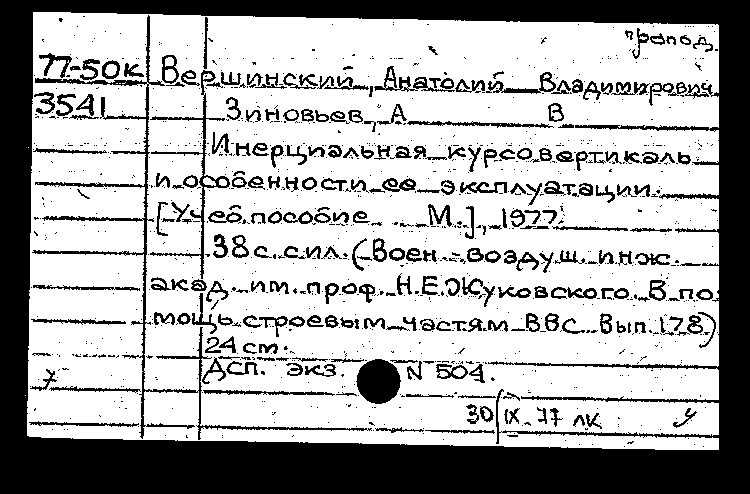 препод.
77-50к Вершинский, Анатолий Владимирович
3541 Зиновьев, А В
Инерциальная курсовертикаль
и особенности ее эксплуатации.
[Учеб. пособие М.], 1977.
38 с. с ил. (Воен.-воздуш. инж.
акад. им. проф. Н.Е. Жуковского. В по-
мощь строевым частям ВВС. Вып. 178)
24 см.
Дсп. экз. N 504.
30/IX-77 лк У